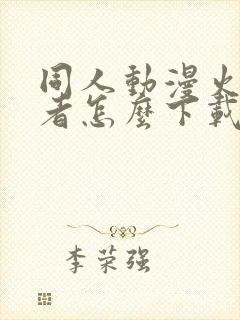 同人動漫火
者怎麼下載
李荣强